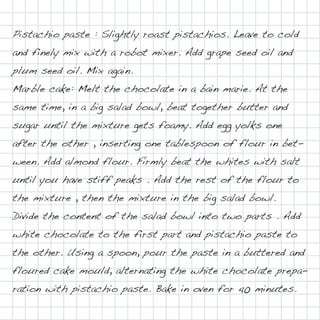 Pistachio paste : Slightly roast pistachios. Leave to cold
and finely mix with a robot mixer. Add grape seed oil and
plum seed oil. Mix again.
Marble cake: Melt the chocolate in a bain marie. At the
same time, in a big salad bowl, beat together butter and
sugar until the mixture gets foamy. Add egg yolks one
after the other , inserting one tablespoon of flour in bet-
ween. Add almond flour. Firmly beat the whites with salt
until you have stiff peaks . Add the rest of the flour to
the mixture , then the mixture in the big salad bowl.
Divide the content of the salad bowl into two parts . Add
white chocolate to the first part and pistachio paste to
the other. Using a spoon, pour the paste in a buttered and
floured cake mould, alternating the white chocolate prepa-
ration with pistachio paste. Bake in oven for 40 minutes.